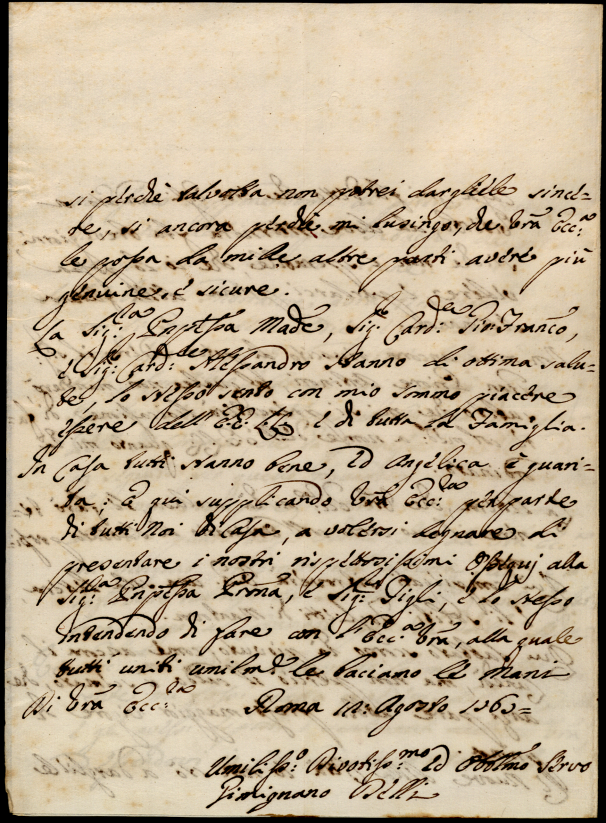 si perchè talvolta non potrei dargliele since-
re, si ancora perchè mi lusingo, che Vrã Ecc:ª
le possa da mille altre parti avere più
genuine, e sicure.
La Sig:ra Pnpessa Made, Sig:e Card: Gio: Franco,
e Sig:e Card: Alessandro stanno di ottima salu-
te, lo stesso sento con mio sommo piacere
essere dell' e di tutta la Famiglia.
In Casa tutti stanno bene, ed Angelica è guari-
ta; e qui supplicando Vrã Ecc:za per parte
di tutti Noi di Casa, a volersi degnare di
presentare i nostri rispettosissimi Ossequj alla
Sig:ra Pnpessa e Sig:i Figli, e lo stesso
intendendo di fare con l'Ecc:ª Vrã, alla quale
tutti uniti umilm:e le baciano le Mani
Di Vrã Ecc:za Roma Agosto
Umiliss:o Divotiss:mo ed Obblmo Servo
Gimignano Belli